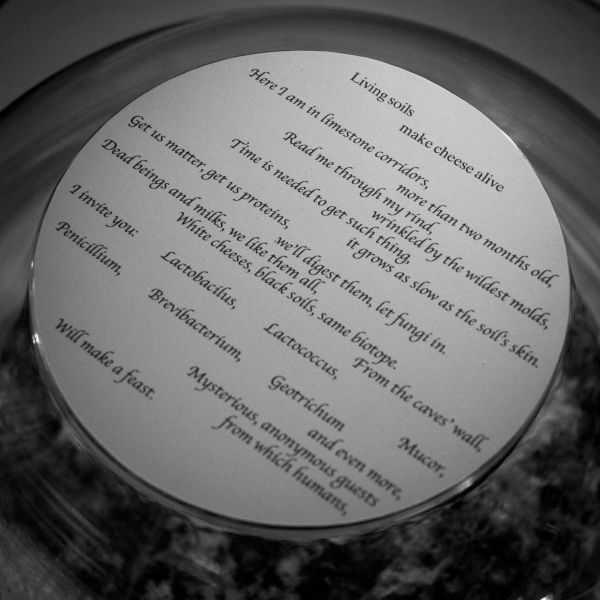 Living soils
make cheese alive
Here I am in limestone corridors,
more than two months old,
Read me through my rind,
wrinkled by the wildest molds,
Time is needed to get such thing,
it grows as slow as the soil's skin.
Get us matter, get us proteins,
we'll digest them, let fungi in.
Dead beings and milks, we like them all,
White cheeses, black soils, same biotope.
From the caves' wall,
I invite you:
Lactobacilus,
Lactococcus,
Mucor,
Penicillium,
Brevibacterium,
Geotrichum
and even more,
Mysterious, anonymous guests
from which humans,
Will make a feast.